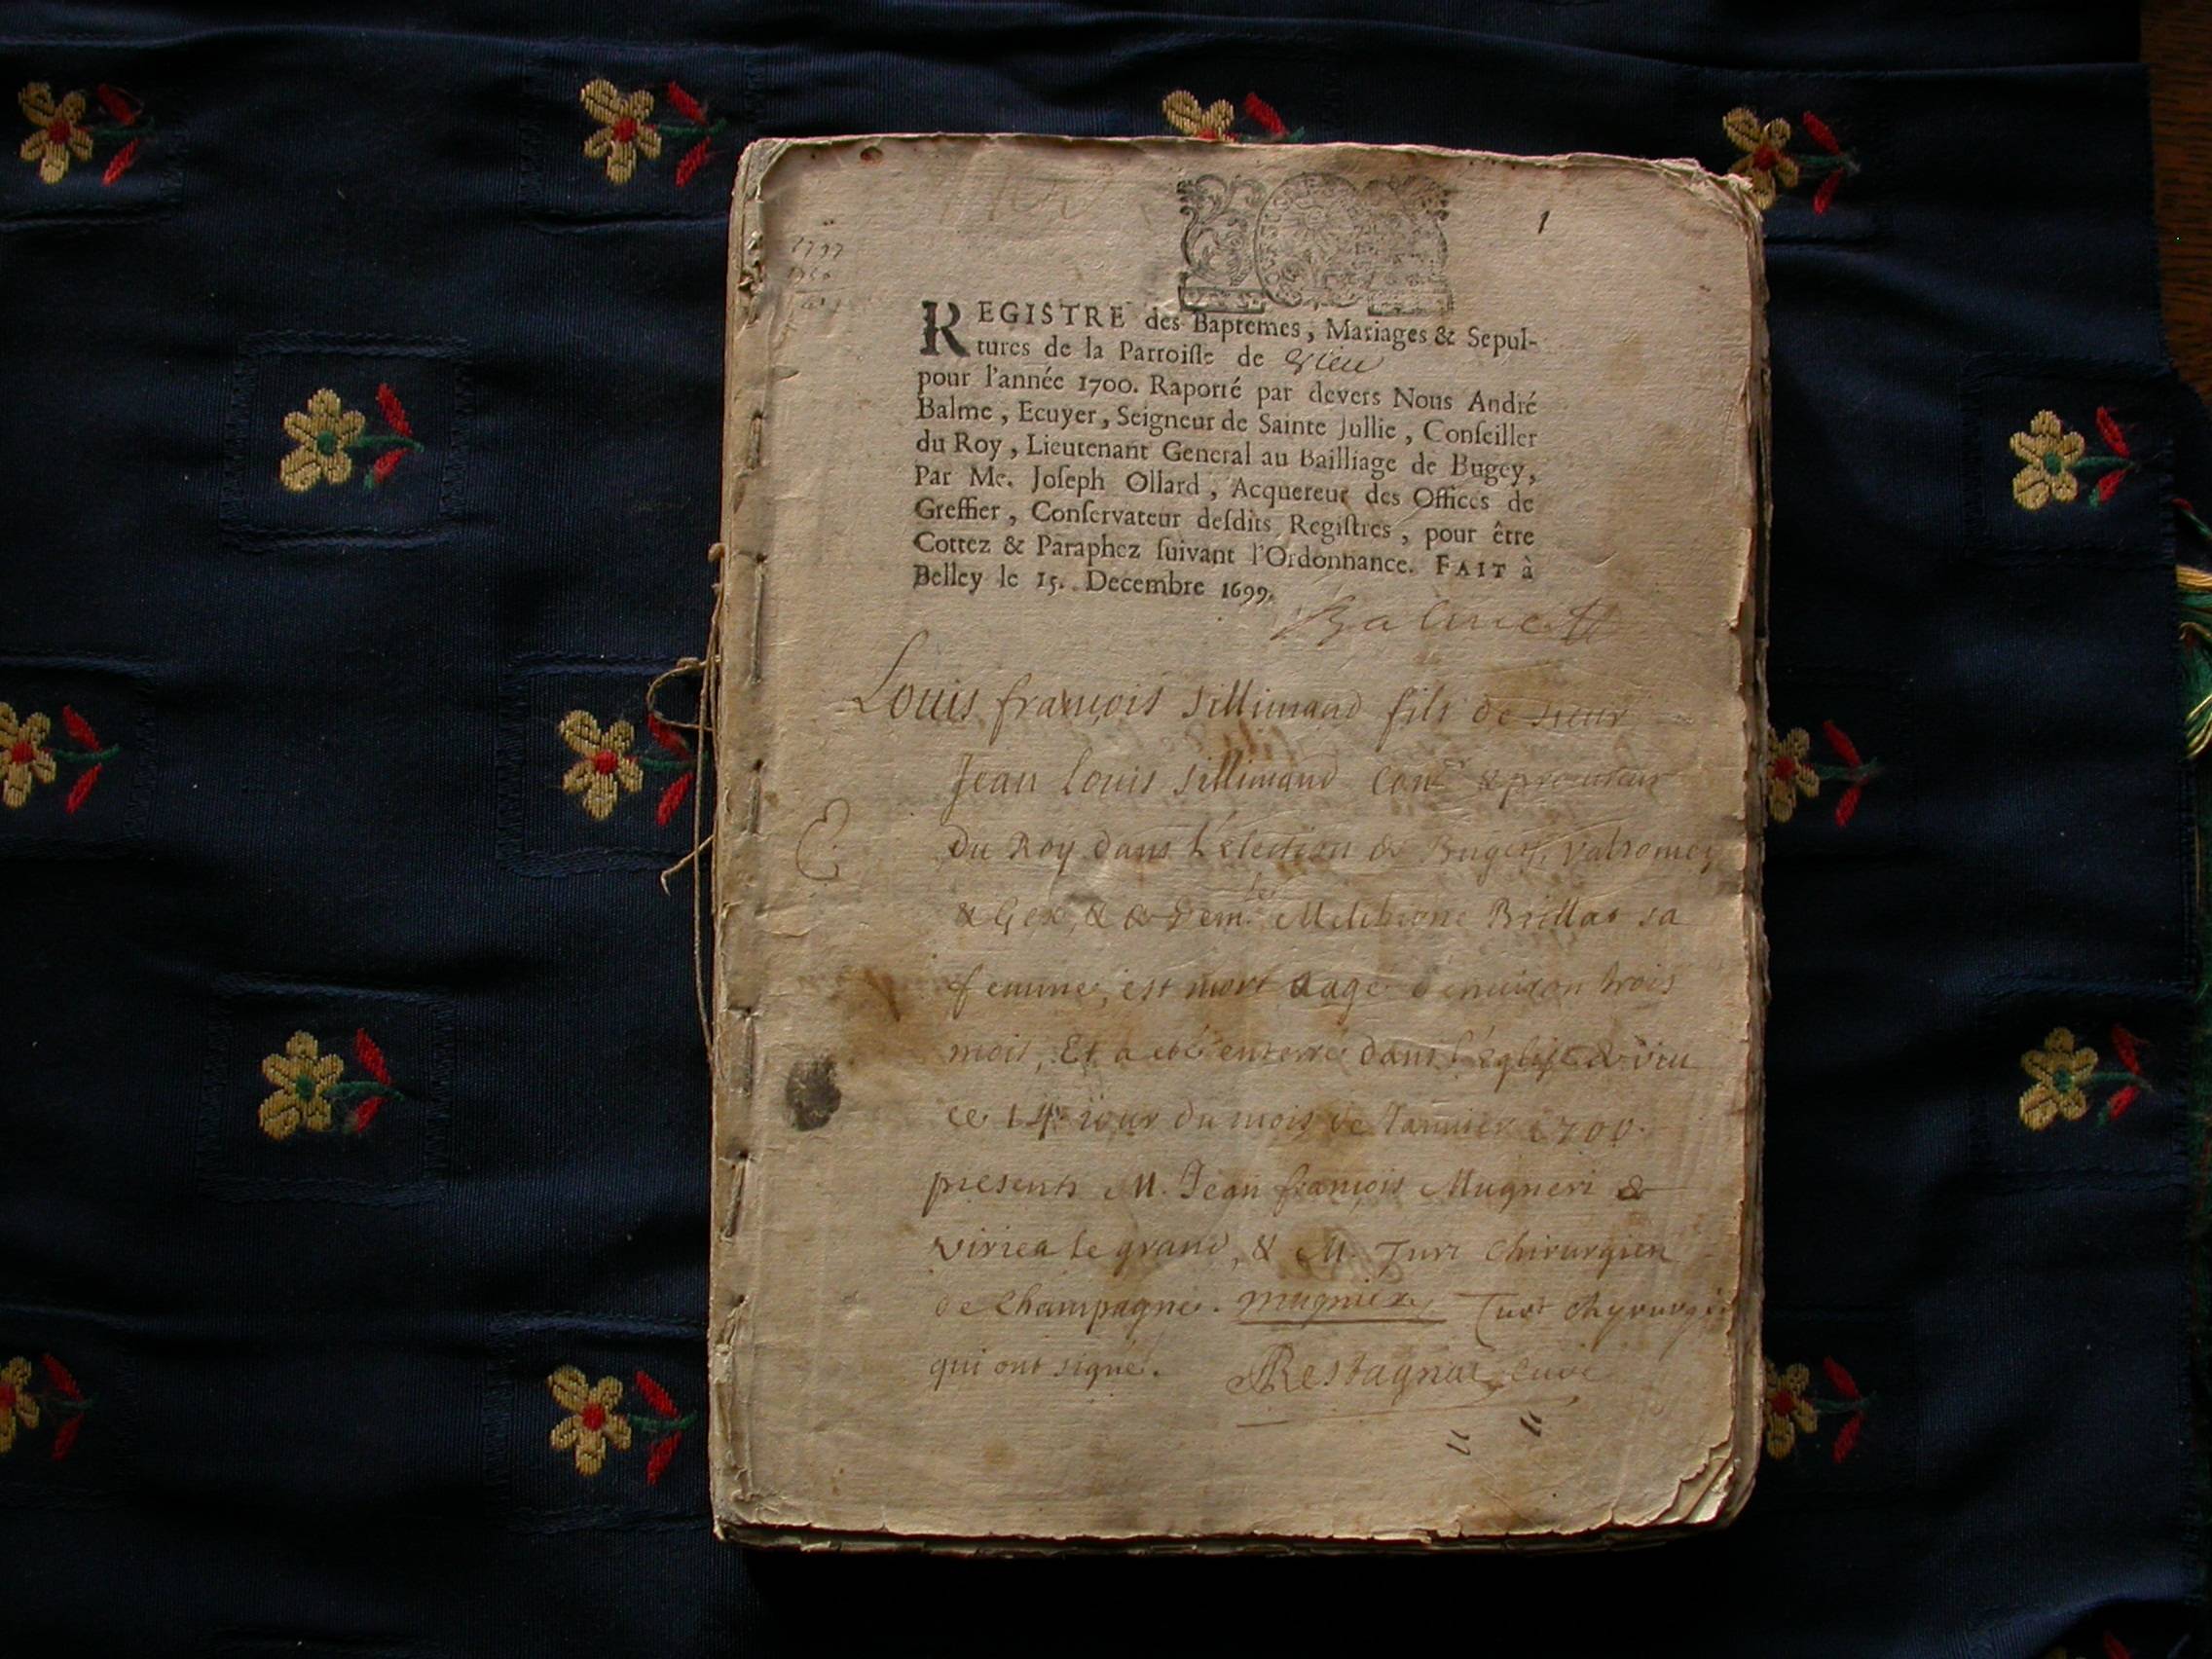 1
REGISTRE des Baptemes, Mariages & Sepul-
tures de la Parroisse de Vieu
pour l'année 1700. Raporté par devers Nous André
Balme, Ecuyer, Seigneur de Sainte Jullie, Conseiller
du Roy, Lieutenant General au Bailliage de Bugey,
Par Me. Joseph Ollard, Acquereur des Offices de
Greffier, Conservateur desdits Registres, pour être
Cottez & Paraphez suivant l'Ordonnance. FAIT à
Belley le 15. Decembre 1699.
Balme
Louis françois Sillimand fils de sieur
Jean Louis Sillimand Con.er & procureur
Du Roy dans l'election de Bugey, Valromey
& Gex, & de Dem.lle Melchione Brillat sa
femme, est mort aagé d'environ trois
mois, Et a eté enterré dans l'église de vieu
ce 14e iour du mois de Ianvier 1700.
presents M. Jean françois Mugneri de
virieu le grand, & M. Juri Chirurgien
de Champagne. mugnier Chyrurgien
qui ont signé. Restagnat Curé